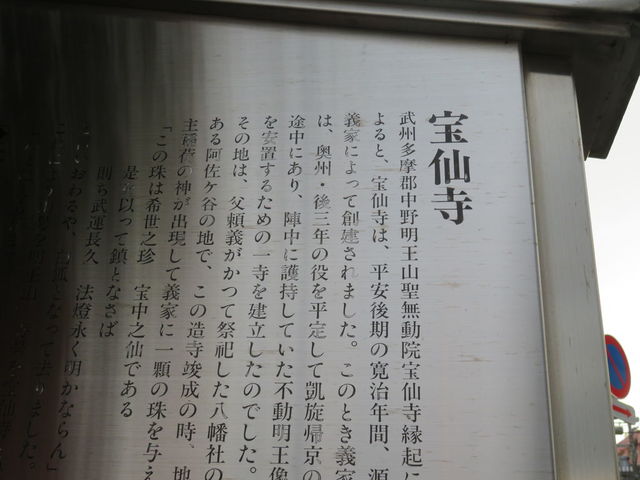 宝仙寺
武州多摩郡中野明王山聖無動院宝仙寺縁起に
よると、宝仙寺は、平安後期の寛治年間、源
義家によって創建されました。このとき義家
は、奥州・後三年の役を平定して凱旋帰京の
途中にあり、陣中に護持していた不動明王像
を安置するための一寺を建立したのでした。
その地は、父頼義がかつて祭祀した八幡社の
ある阿佐ケ谷の地で、この造寺竣成の時、地
主稲荷の神が出現して義家に一顆の珠を与え
「この珠は希世之珍 宝中之仙である
是を以って鎮となさば
則ち武運長久 法燈永く明かならん」
おわるや、白狐となって去りました。
明王山